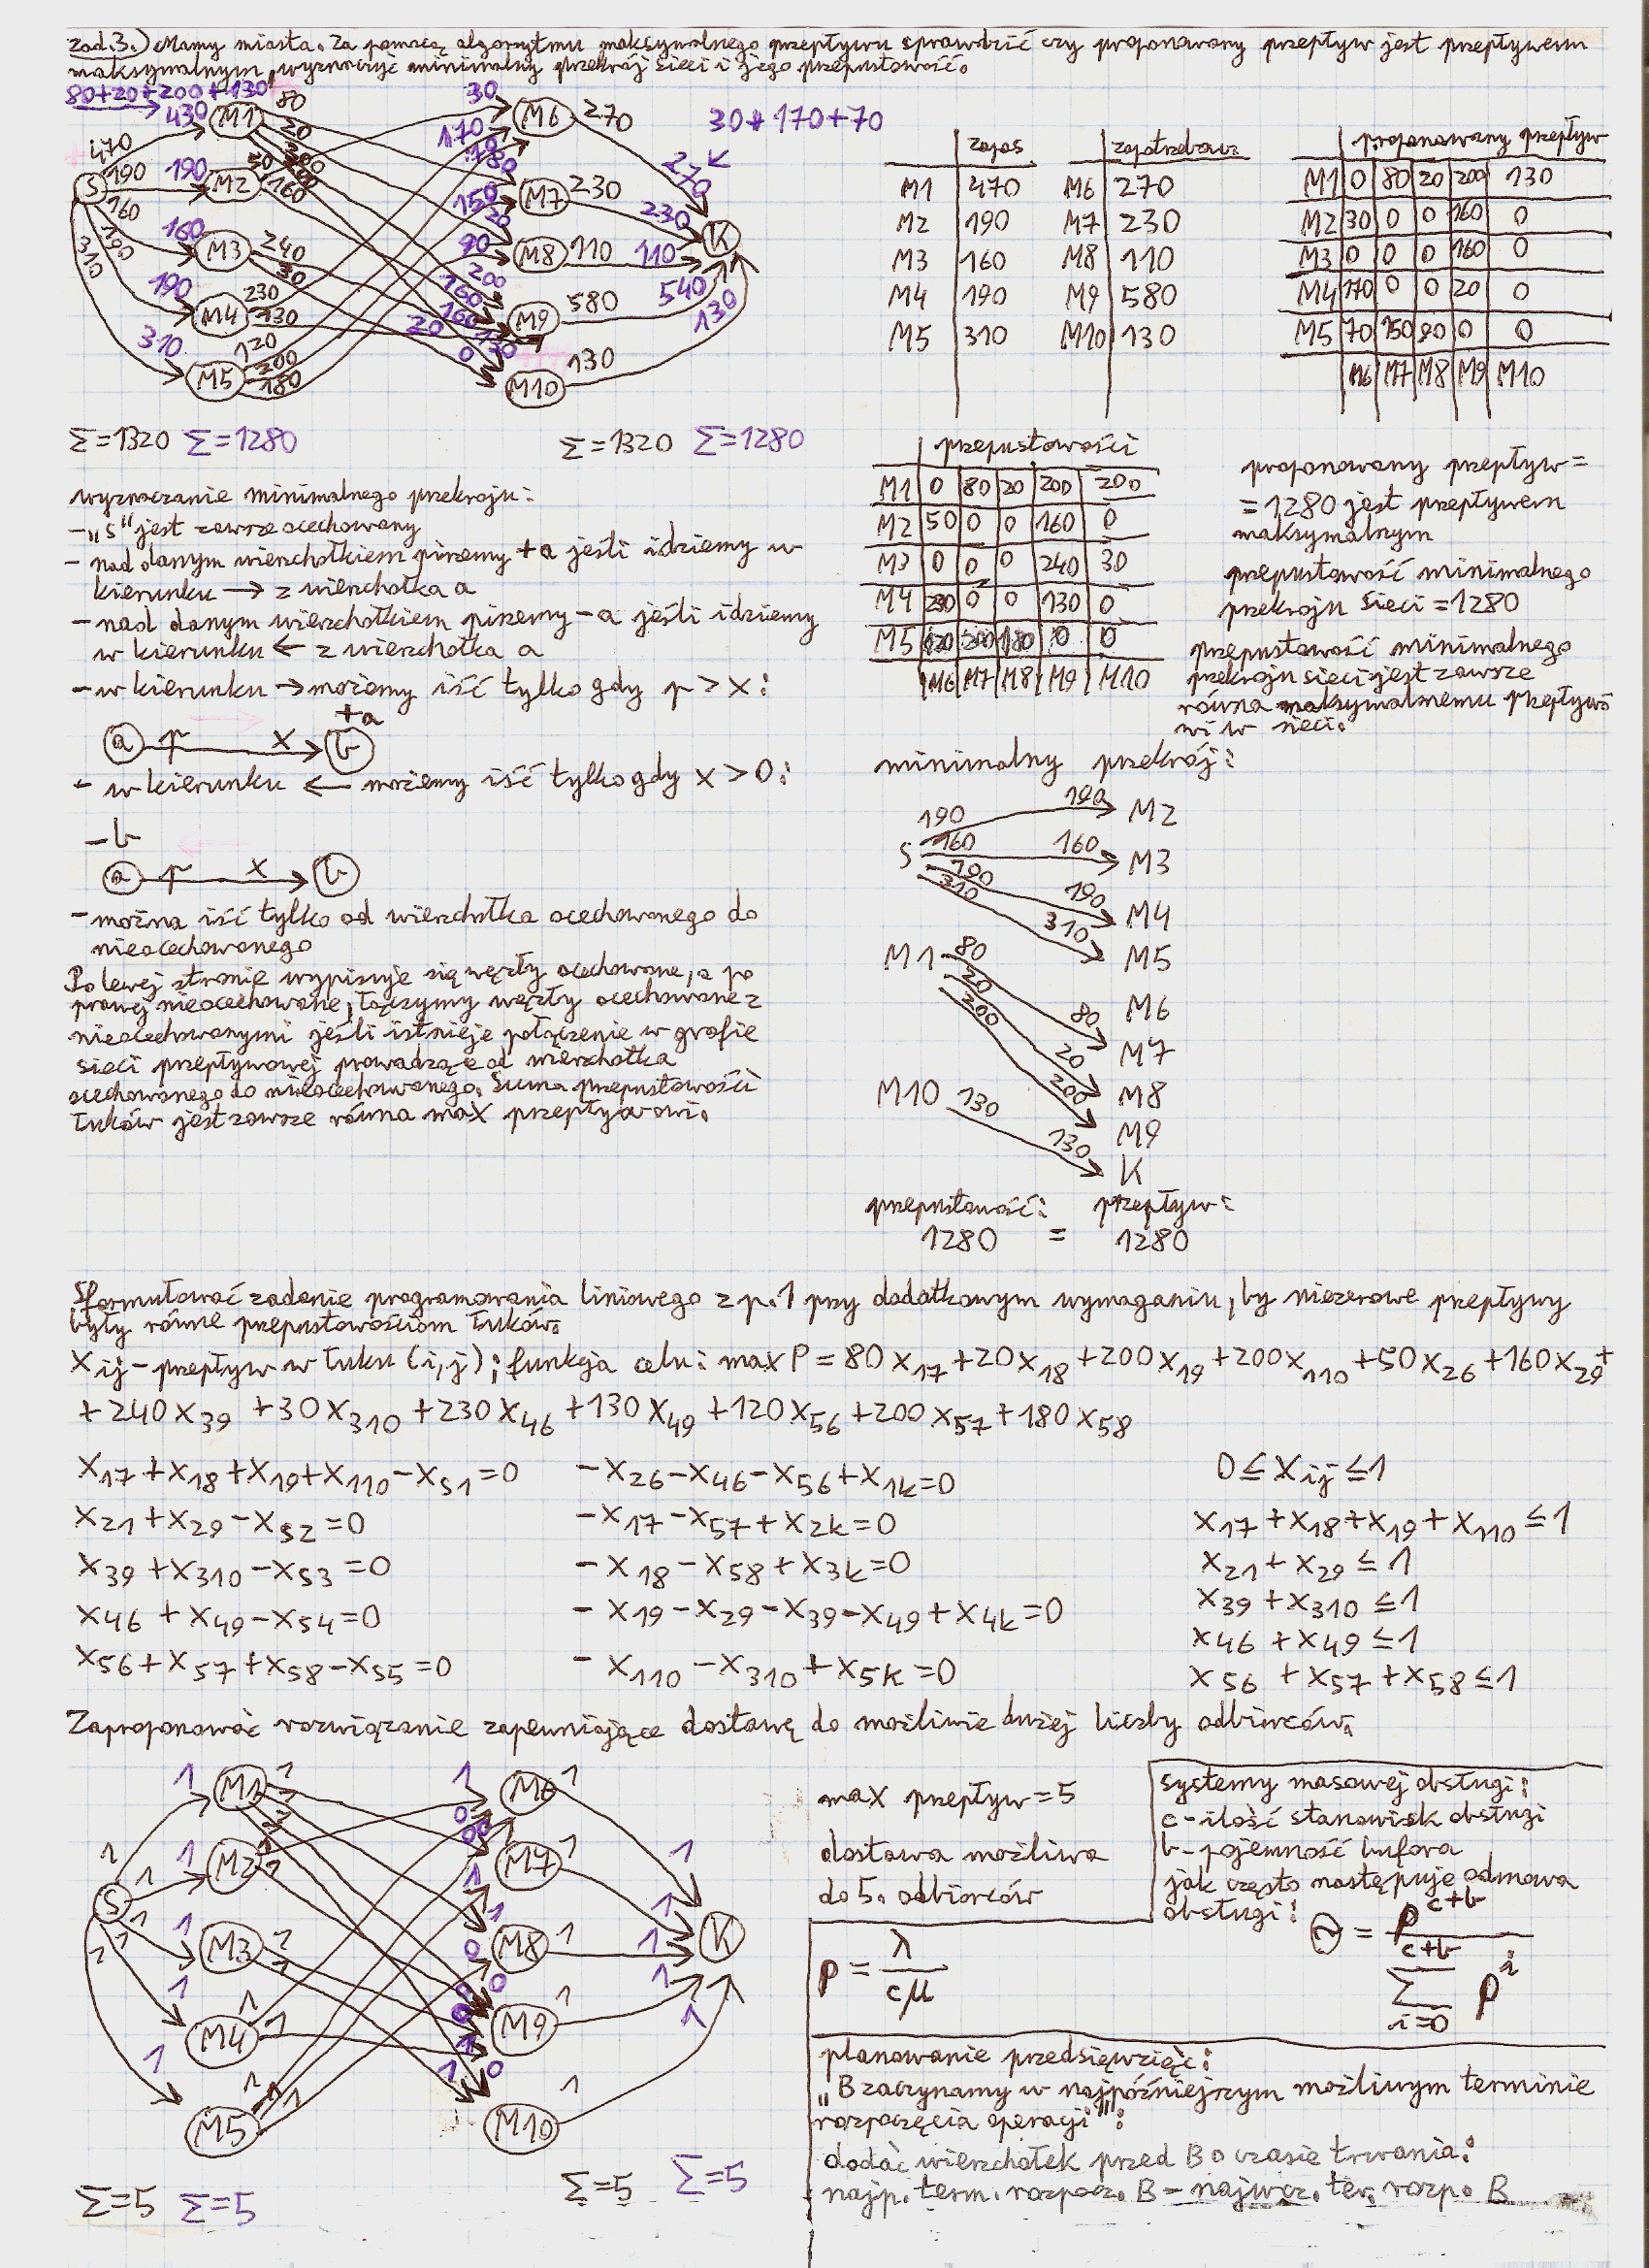 zad.3.) Mamy miasta. Za pomocą algorytmu maksymalnego przepływu sprawdzić czy proponowany przepływ jest przepływem
maksymalnym, wyznaczyć minimalny przekrój sieci i jego przepustowość.
80+20+200+130
430 M1 80
20
470
190 190 M2 50
160
S
160
160 M3 240
30
190
190 M4 230
130
310
310 M5 120
200
180
30 M6 270
170
70
80
150 M7 230
20
90 M8 110
200
160
160
20 M9 580
130
0 M10 130
30+170+70
270
230
110
540
130
K
zapas zapotrzebow.
M1 470 M6 270
M2 190 M7 230
M3 160 M8 110
M4 190 M9 580
M5 310 M10 130
proponowany przepływ
M1 0 80 20 200 130
M2 30 0 0 160 0
M3 0 0 0 160 0
M4 170 0 0 20 0
M5 70 150 90 0 0
M6 M7 M8 M9 M10
Σ=1320 Σ=1280 Σ=1320 Σ=1280
przepustowości
M1 0 80 20 200 200
M2 50 0 0 160 0
M3 0 0 0 240 30
M4 230 0 0 130 0
M5 120 200 180 0 0
M6 M7 M8 M9 M10
proponowany przepływ=
=1280 jest przepływem
maksymalnym
przepustowość minimalnego
przekroju sieci=1280
przepustowość minimalnego
przekroju sieci jest zawsze
równa maksymalnemu przepływo
wi w sieci.
wyznaczanie minimalnego przekroju:
- "S" jest zawsze ocechowany
- nad danym wierzchołkiem piszemy +a jeśli idziemy w
kierunku → z wierzchołka a
- nad danym wierzchołkiem piszemy -a jeśli idziemy
w kierunku ← z wierzchołka a
- w kierunku → możemy iść tylko gdy p > x:
+a
a p x b
- w kierunku ← możemy iść tylko gdy x > 0:
-b
a p x b
- można iść tylko od wierzchołka ocechowanego do
nieocechowanego
Po lewej stronie wypisuje się węzły ocechowane, a po
prawej nieocechowane, łączymy węzły ocechowane z
nieocechowanymi jeśli istnieje połączenie w grafie
sieci przepływowej prowadzące od wierzchołka
ocechowanego do nieocechowanego. Suma przepustowości
łuków jest zawsze równa max przepływowi.
minimalny przekrój:
190 190 M2
S 160 160 M3
190 190 M4
310 310 M5
M1 80 M6
20 80 M7
200 20 M8
M10 130 200 M9
130 K
przepustowość: przepływ:
1280 = 1280
Sformułować zadanie programowania liniowego z p.1 przy dodatkowym wymaganiu, by niezerowe przepływy
były równe przepustowościom łuków.
Xij - przepływ w łuku (i,j); funkcja celu: max P = 80x17 +20x18 +200x19 +200x110 +50x26 +160x29 +
+240x39 +30x310 +230x46 +130x49 +120x56 +200x57 +180x58
x17 +x18 +x19 +x110 -xS1=0 -x26-x46-x56+x1k=0 0≤xij≤1
x21 +x29 -xS2=0 -x17-x57+x2k=0 x17 +x18+x19+x110≤1
x39 +x310 -xS3=0 -x18-x58+x3k=0 x21+x29≤1
x46 +x49-xS4=0 -x19-x29-x39-x49+x4k=0 x39+x310≤1
x46 +x49≤1
x56+x57+x58-xS5=0 -x110-x310+x5k=0 x56 +x57+x58≤1
Zaproponować rozwiązanie zapewniające dostawę do możliwie dużej liczby odbiorców.
S M1 M2 M3 M4 M5
M6 M7 M8 M9 M10 K
Σ=5 Σ=5 Σ=5 Σ=5
max przepływ=5
dostawa możliwa
do 5. odbiorców
systemy masowej obsługi:
c-ilość stanowisk obsługi
b-pojemność bufora
jak często następuje odmowa
obsługi:
= ρ^(c+b) / Σ_(i=0)^(c+b) ρ^i
ρ = λ/cμ
planowanie przedsięwzięć:
„B zaczynamy w najpóźniejszym możliwym terminie
rozpoczęcia operacji":
dodać wierzchołek przed B o czasie trwania:
najp. term. rozpocz. B - najwcz. ter. rozp. B